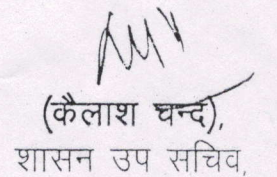 (कैलाश चन्द),
शासन उप सचिव,